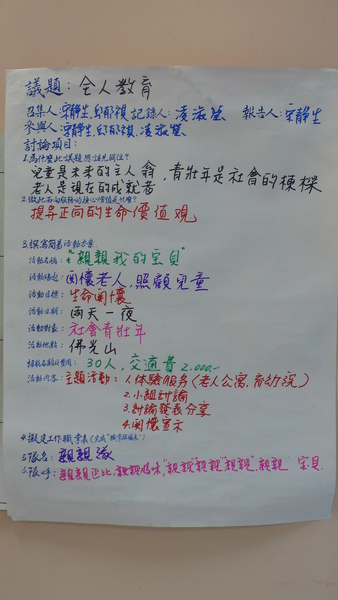 議題：全人教育
召集人：宋靜生,邱郁禎 記錄人：凌淑鶯 報告人：宋靜生
參與人：宋靜生,邱郁禎,凌淑鶯
討論項目：
1.為什麼此議題應該先關注？
兒童是未來的主人翁，青壯年是社會的棟樑
老人是現在的成就者
2.做此面向服務的核心價值是什麼？
提昇正向的生命價值觀
3.撰寫簡易活動方案
活動名稱："親親我的宝貝"
活動緣起：関懷老人,照顧兒童
活動目標：生命関懷
活動日期：兩天一夜
活動對象：社會青壯年
活動地點：佛光山
招收名額及費用：30人,交通費2.000-
活動內容：主題活動：1.体驗服务(老人公寓.育幼院)
2.小組討論
3.討論發表分享
4.関懷宣示
4.擬定工作職掌表
5.隊名：親親激
6.隊呼：親親 "親親"親親"親親"，親親 宝貝